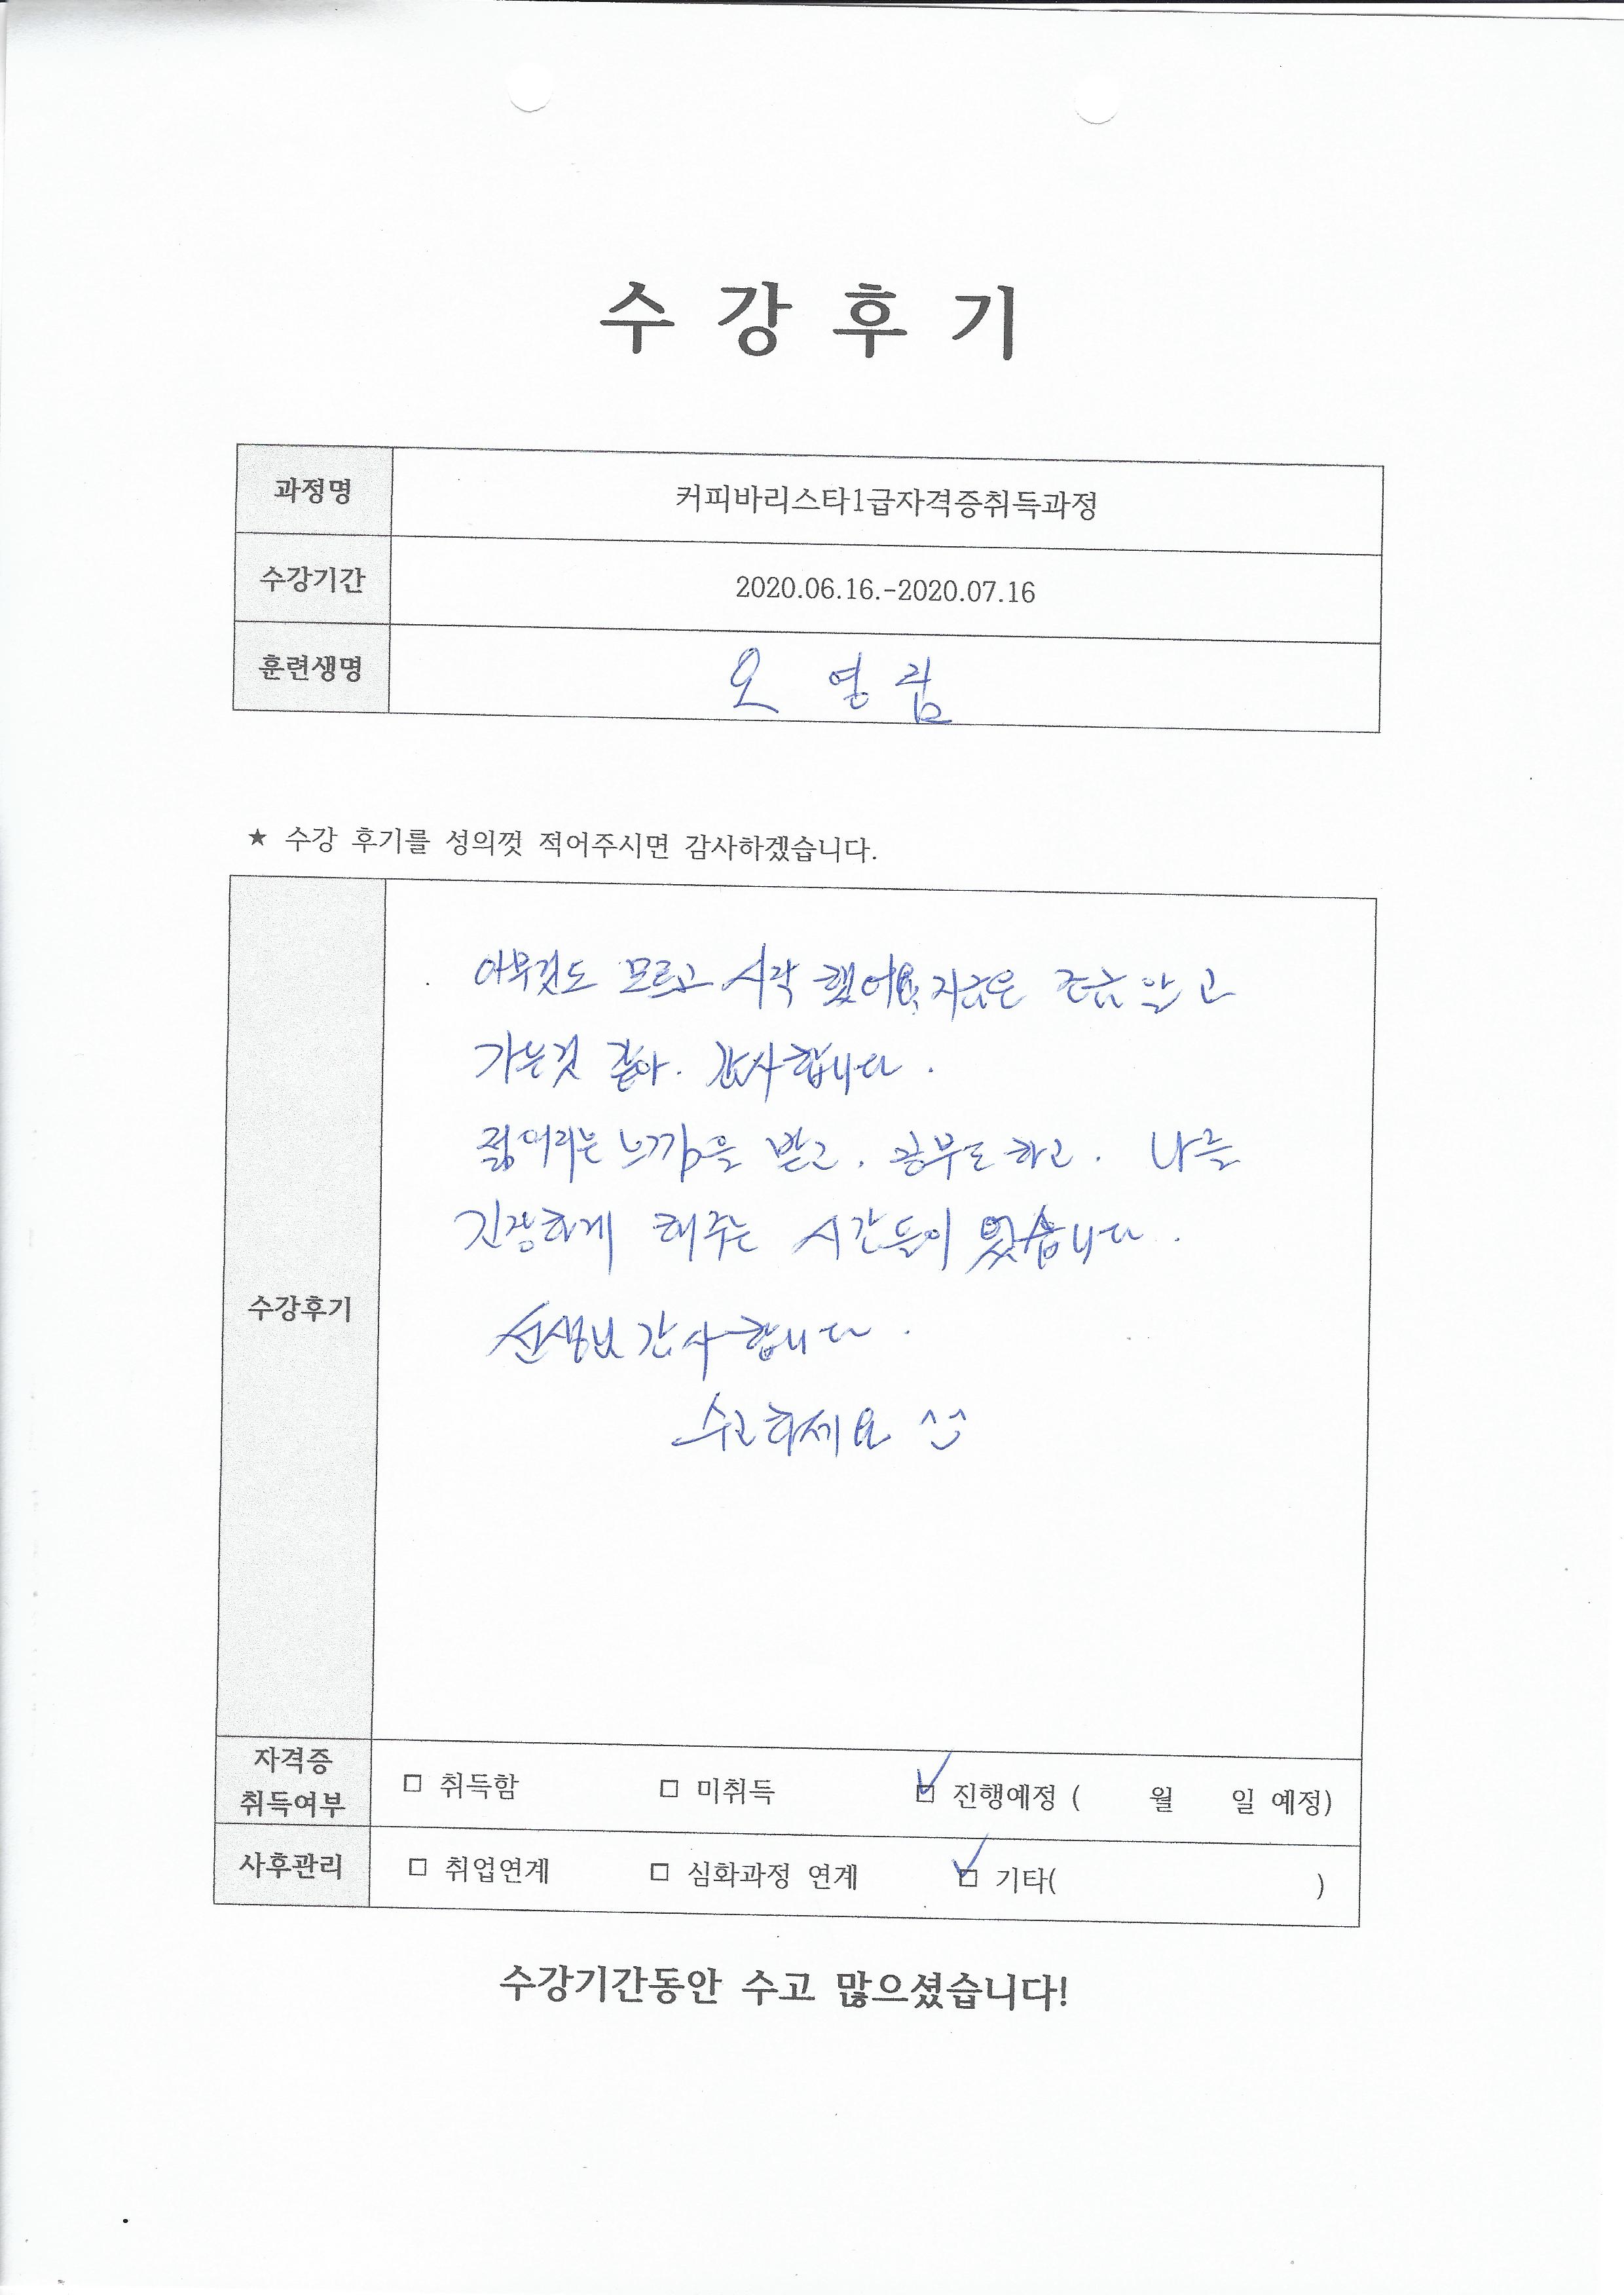 수 강 후 기
과정명 커피바리스타1급자격증취득과정
수강기간 2020.06.16.-2020.07.16
훈련생명 오
★ 수강 후기를 성의껏 적어주시면 감사하겠습니다.
수강후기
아무것도 모르고 시작 했어요, 지금은 조금 알고
가는것 같아. 감사합니다.
젊어지는 느낌을 받고. 공부도 하고. 나를
긴장하게 해주는 시간들이 였습니다.
선생님 감사합니다.
수고하세요 ^^
자격증 취득여부 □ 취득함 □ 미취득 ☑ 진행예정 ( 월 일 예정)
사후관리 □ 취업연계 □ 심화과정 연계 ☑ 기타( )
수강기간동안 수고 많으셨습니다!